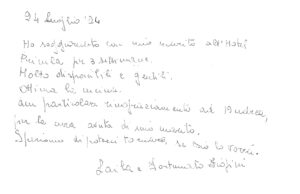 24 Luglio '24
Ho soggiornato con mio marito all'Hotel
per 3 settimane.
Molto disponibili e gentili.
Ottimo il menù.
un particolare ringraziamento ad Andrea,
per la sua aiuto di mio marito.
Speriamo di poterci tornare, se Dio lo vorrà.
Laila e Fortunato